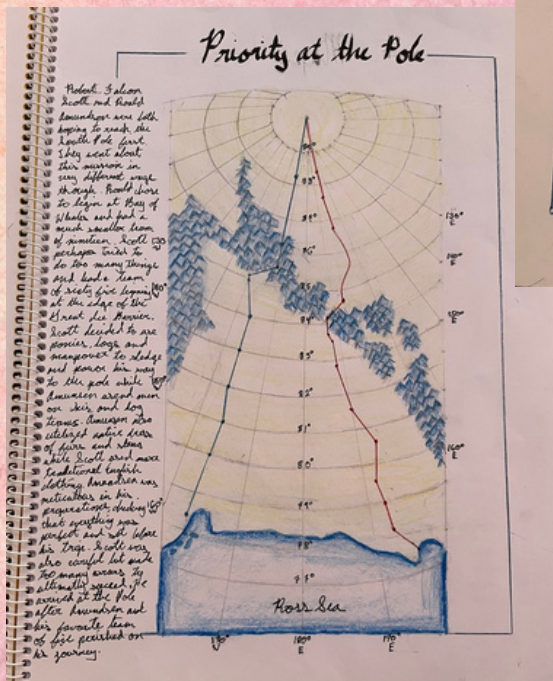 Priority at the Pole
Robert Falcon
Scott and Roald
Amundsen were both
hoping to reach the
South Pole first.
They went about
this mission in
very different ways
though. Roald chose
to begin at Bay of
Whales and had a
much smaller team
of nineteen. Scott
perhaps tried to
do too many things
and had a team
of sixty five
at the edge of the
Great Ice Barrier.
Scott decided to use
ponies, dogs and
manpower to sledge
and power his way
to the pole while
men
on skis and dog
teams. also
native
of furs and skins
while Scott used more
traditional English
clothing. Amundsen was
meticulous in his
preparations, checking
that everything was
perfect and set before
his trip. Scott was
also careful but made
too many errors to
He
arrived at the Pole
after Amundsen and
his favorite team
of five perished on
his journey.
130°
E
140°
E
150°
E
160°
E
86°
85°
84°
83°
82°
81°
80°
79°
78°
77°
Ross Sea
180°
E
170°
E